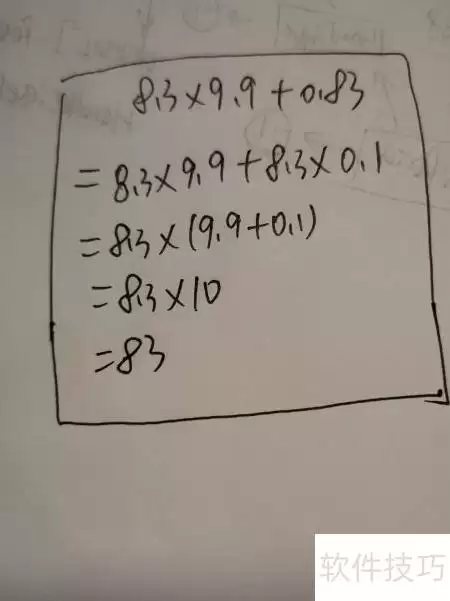 8.3×9.9+0.83
=8.3×9.9+8.3×0.1
=8.3×(9.9+0.1)
=8.3×10
=83
软件技巧